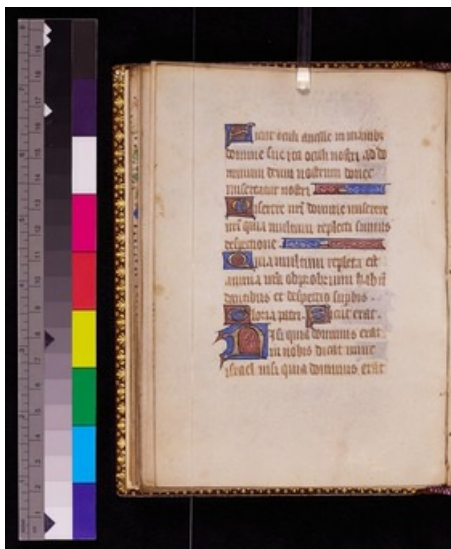 Sicut oculi ancille in manibz
domine sue ita oculi nostri ad do
minum deum nostrum donec
misereatur nostri
Miserere nri domine miserere
nri quia multum repleti sumus
despectione
Quia multum repleta est
anima nra obprobrium habn
dantibus et despectio suphis.
Gloria patri. Sicut erat.
Nisi quia dominus erat
in nobis dicat nunc
israel nisi quia dominus erat